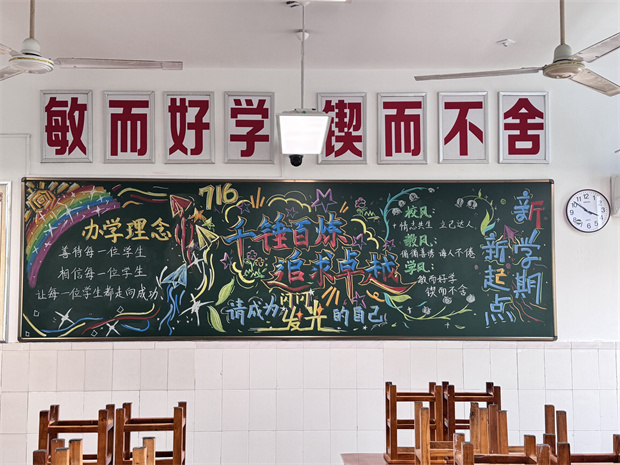 敏而好学 锲而不舍
716
办学理念
善待每一位学生
相信每一位学生
让每一位学生都走向成功
千锤百炼
追求卓越
请成为闪闪发光的自己
校风:
情志共生 立己达人
教风:
循循善诱 诲人不倦
学风:
敏而好学
锲而不舍
新学期
新起点